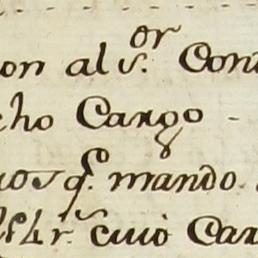 on al S.or Con
cho Cargo
os q.e mando.
r.s cuio Car